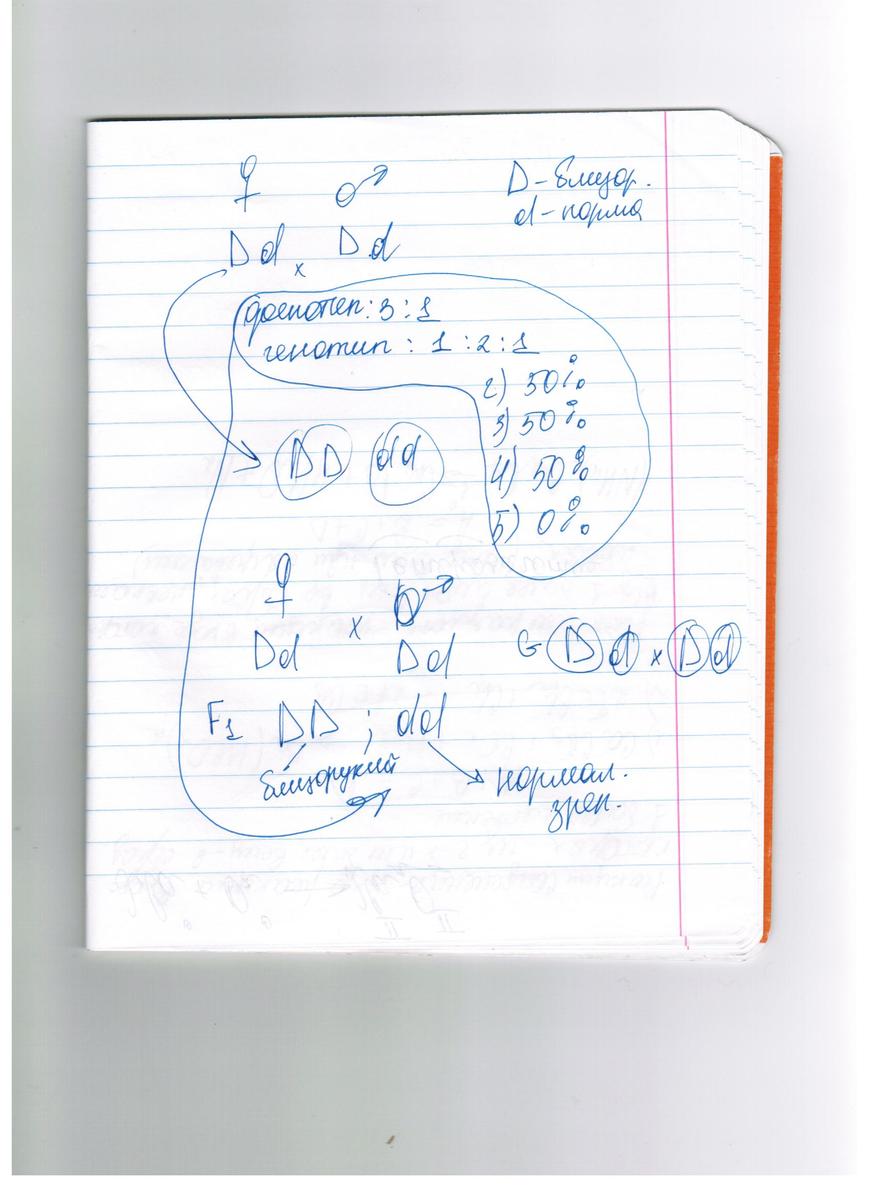 ♀ ♂
D - близор.
d - норма
Dd x Dd
фенотип: 3:1
генотип: 1:2:1
2) 50%
3) 50%
4) 50%
5) 0%
DD dd
♀ x ♂
Dd Dd
G D d x D d
F1 DD ; dd
близорукий
нормал.
зрен.